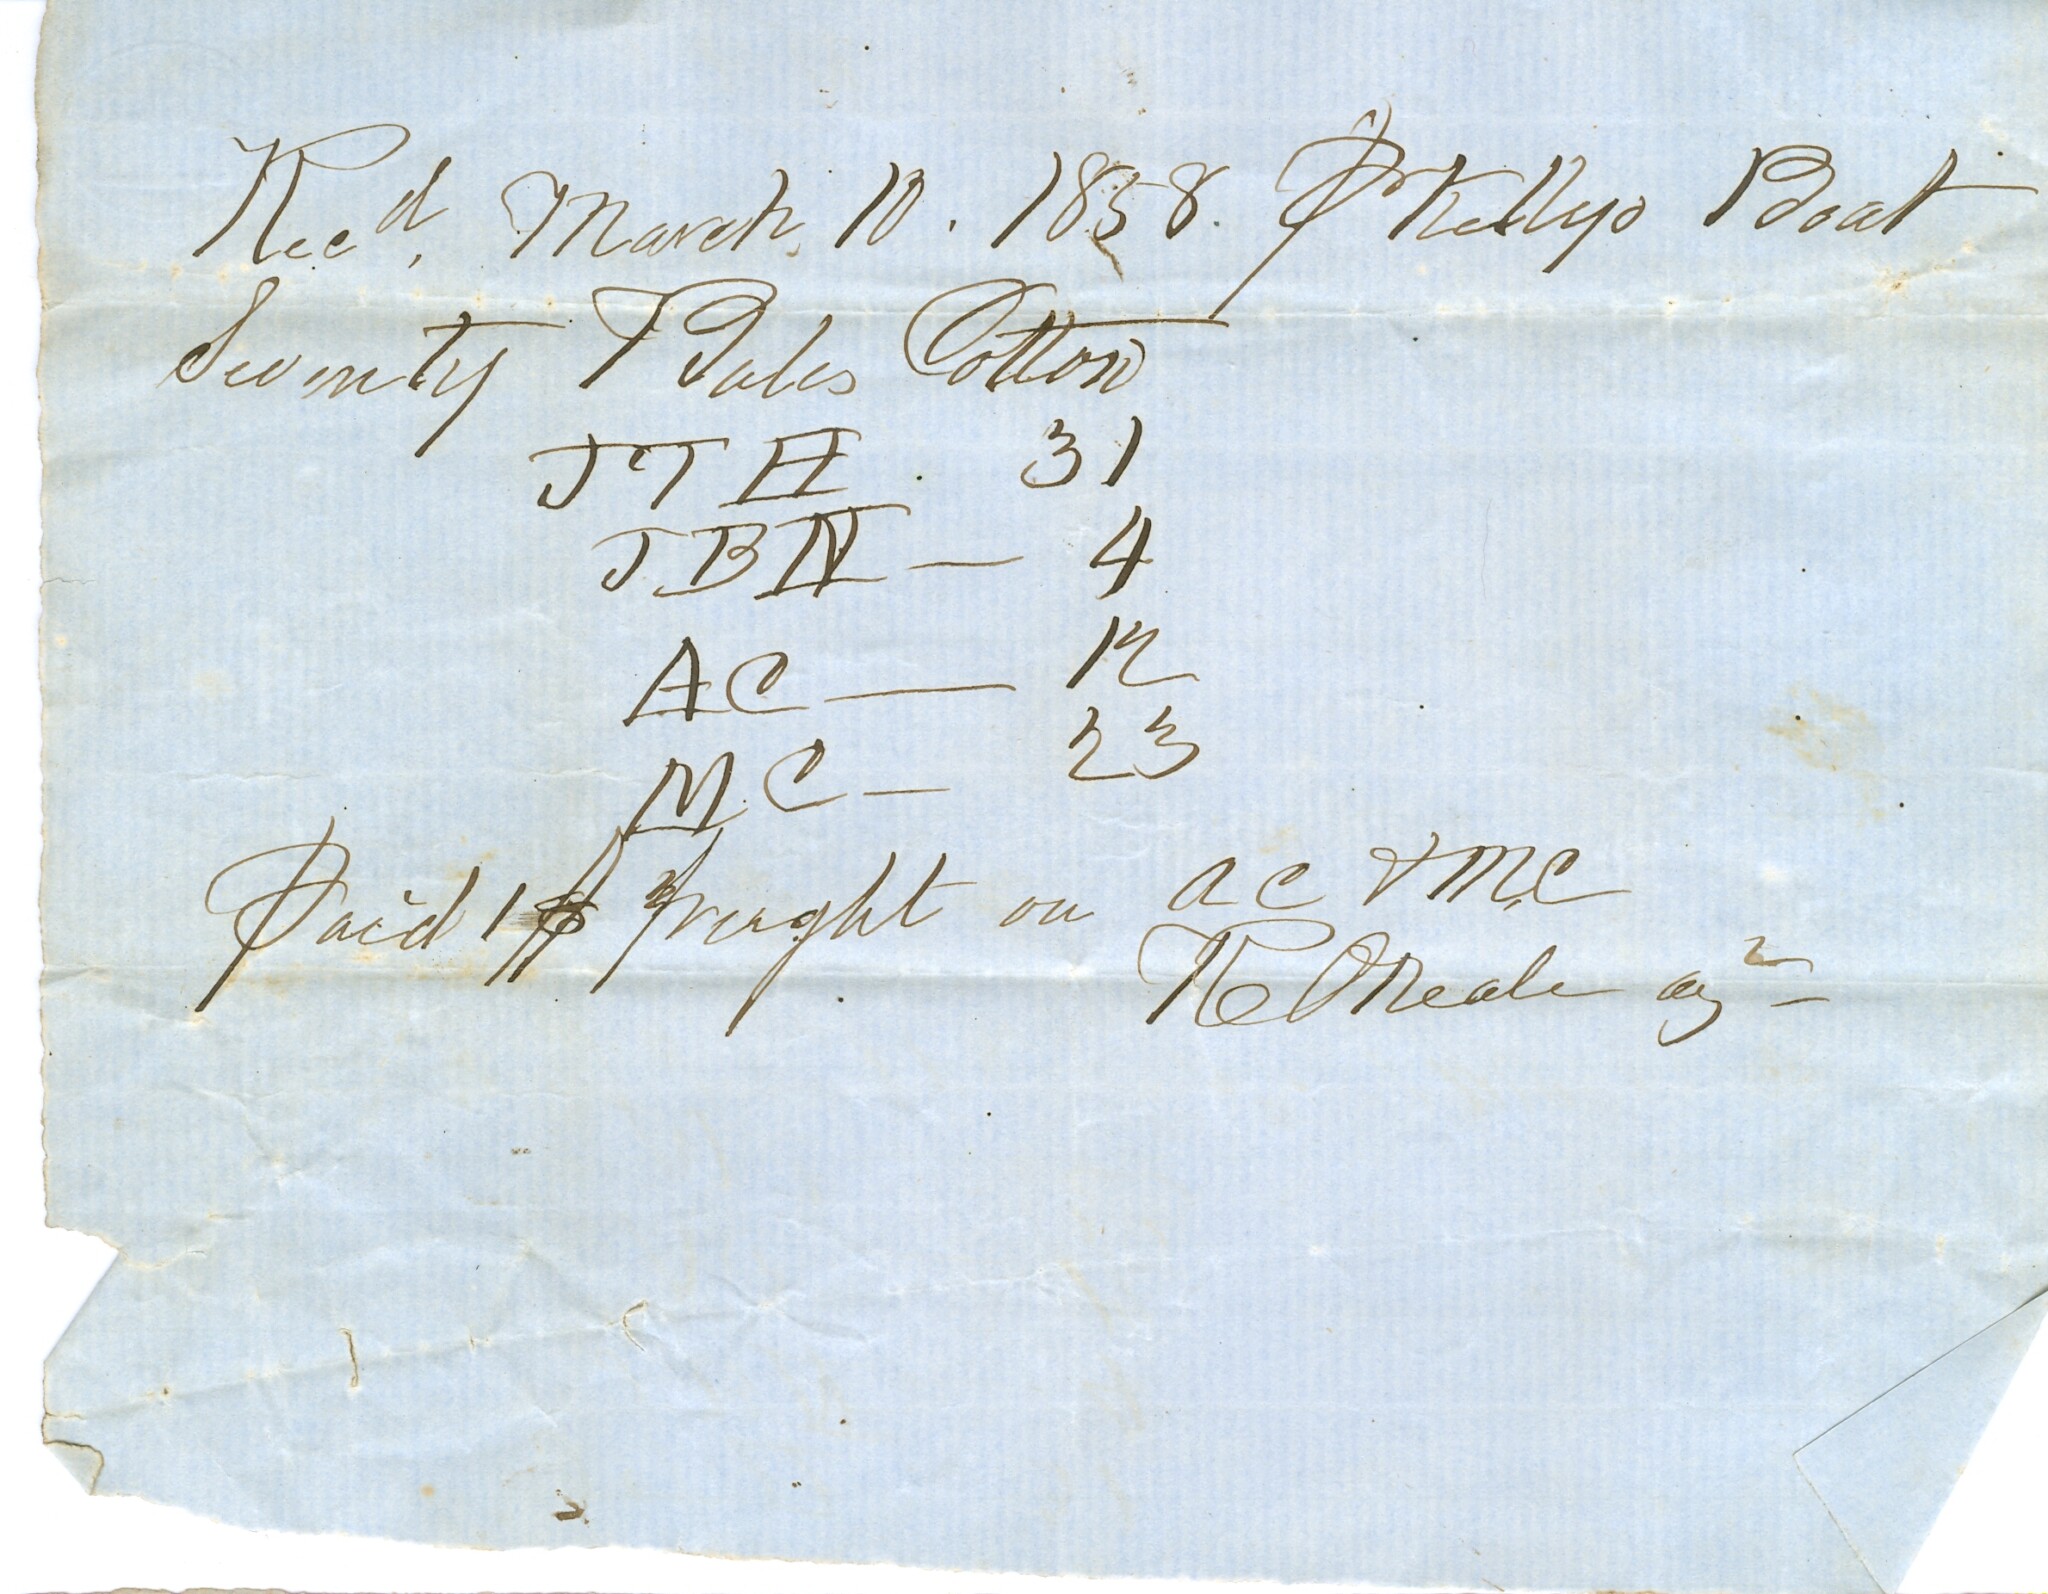 Recd, March 10. 1858. Kellys Boat
Seventy Bales Cotton
JTH . 31
JBN — 4
AC — 12
MC — 23
Paid freight on AC & MC
R ONeale